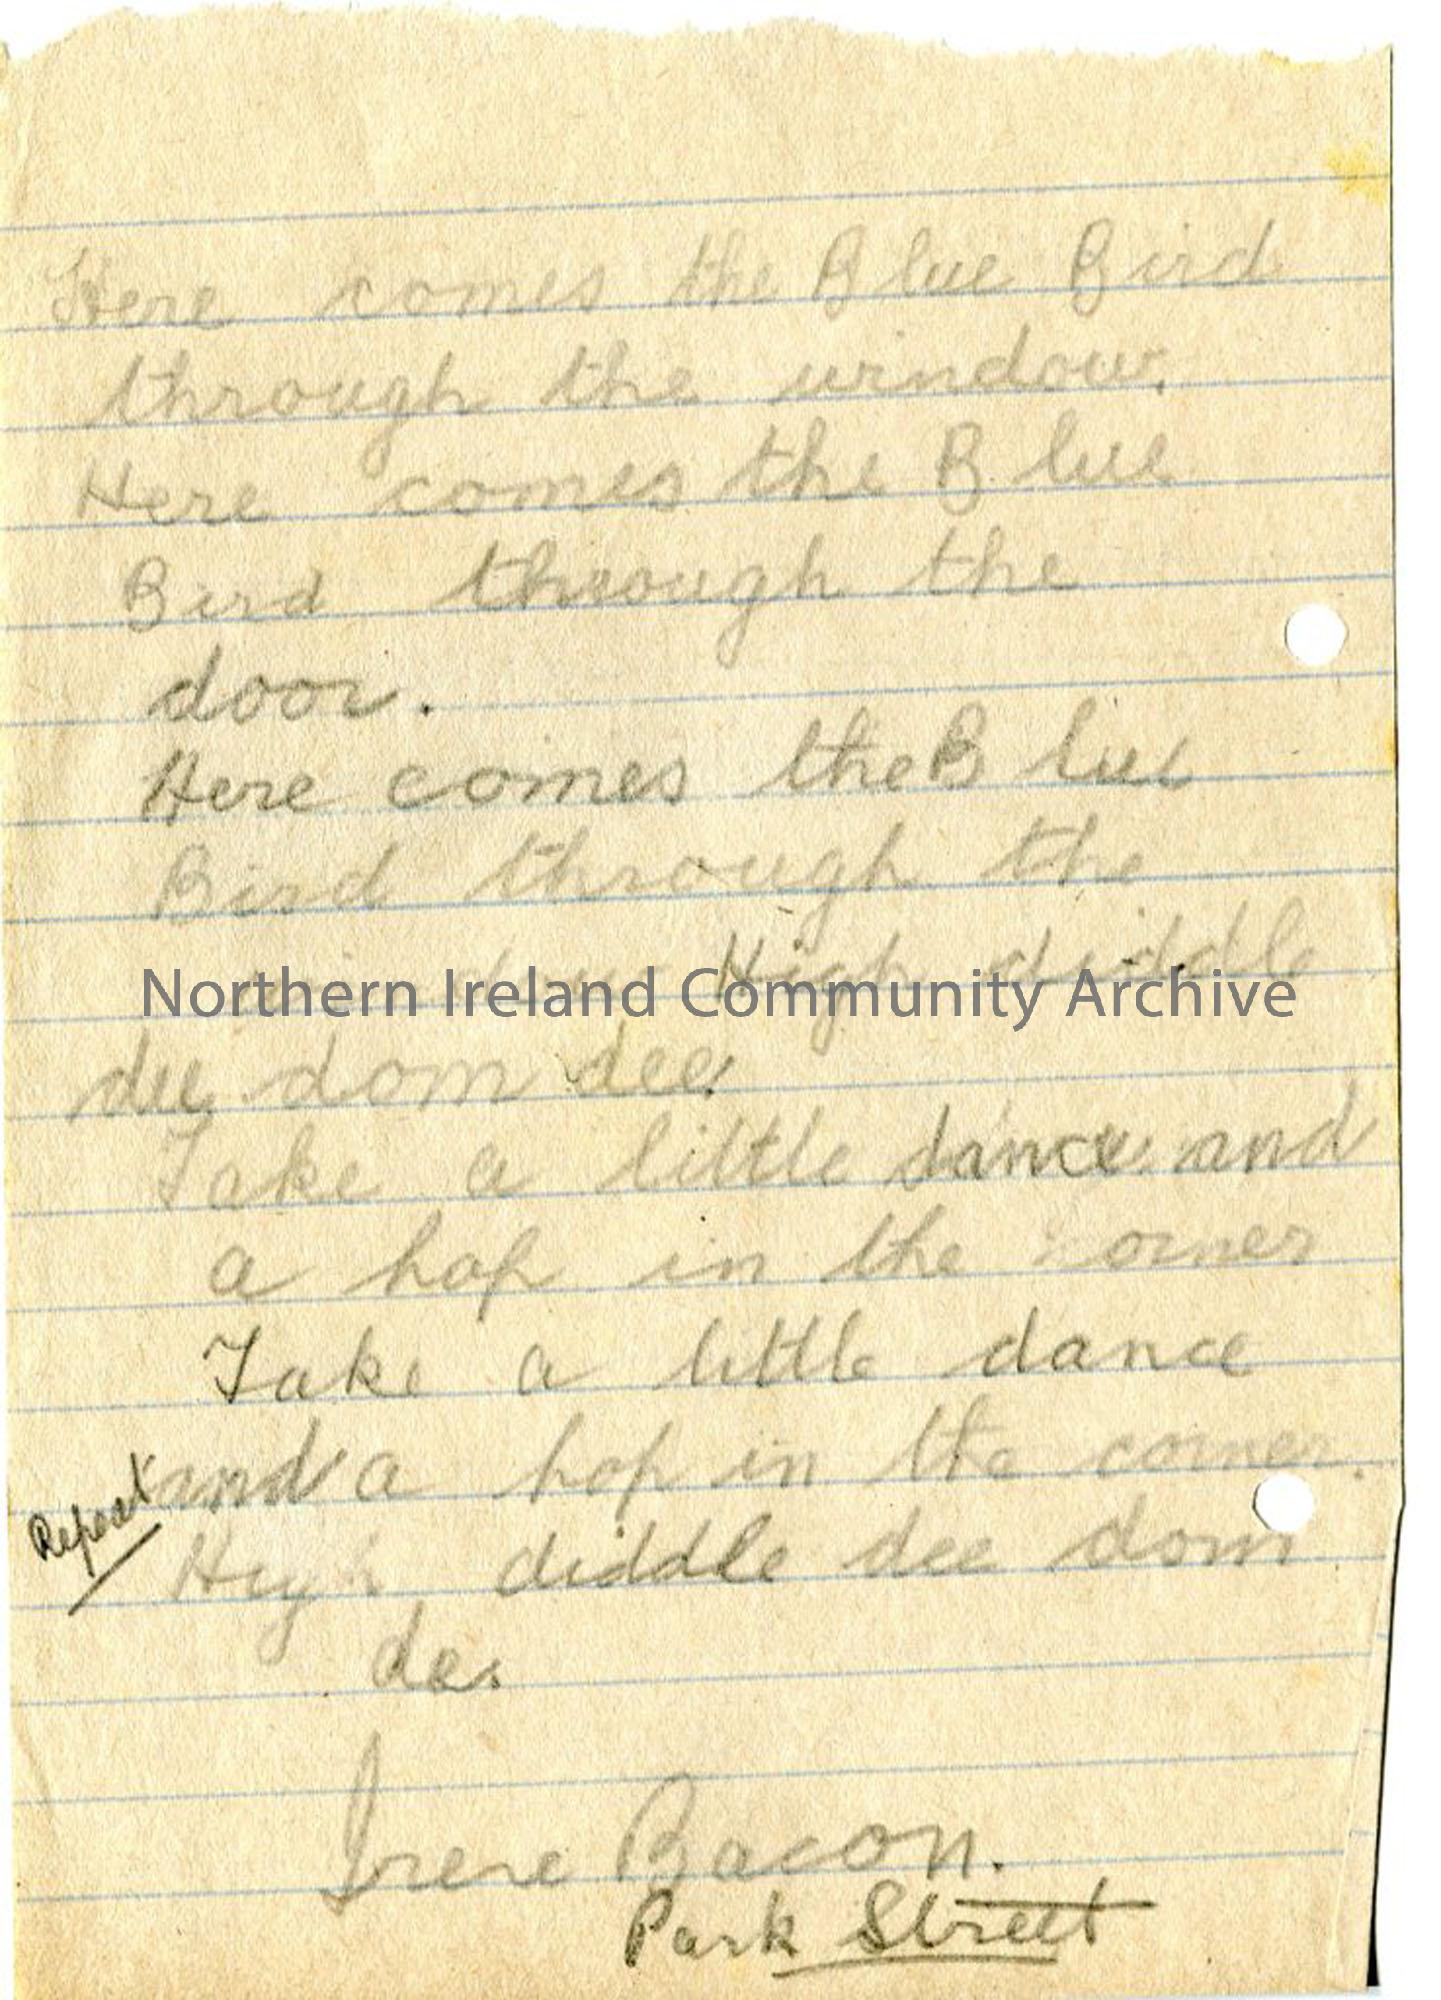 Here comes the Blue Bird
through the window.
Here comes the Blue
Bird through the
door.
Here comes the Blue
Bird through the
window High diddle
Northern Ireland Community Archive
dee dom dee.
Take a little dance and
a hop in the corner
Take a little dance
and a hop in the corner.
Repeat
High diddle dee dom
de.
Irene Bacon.
Park Street